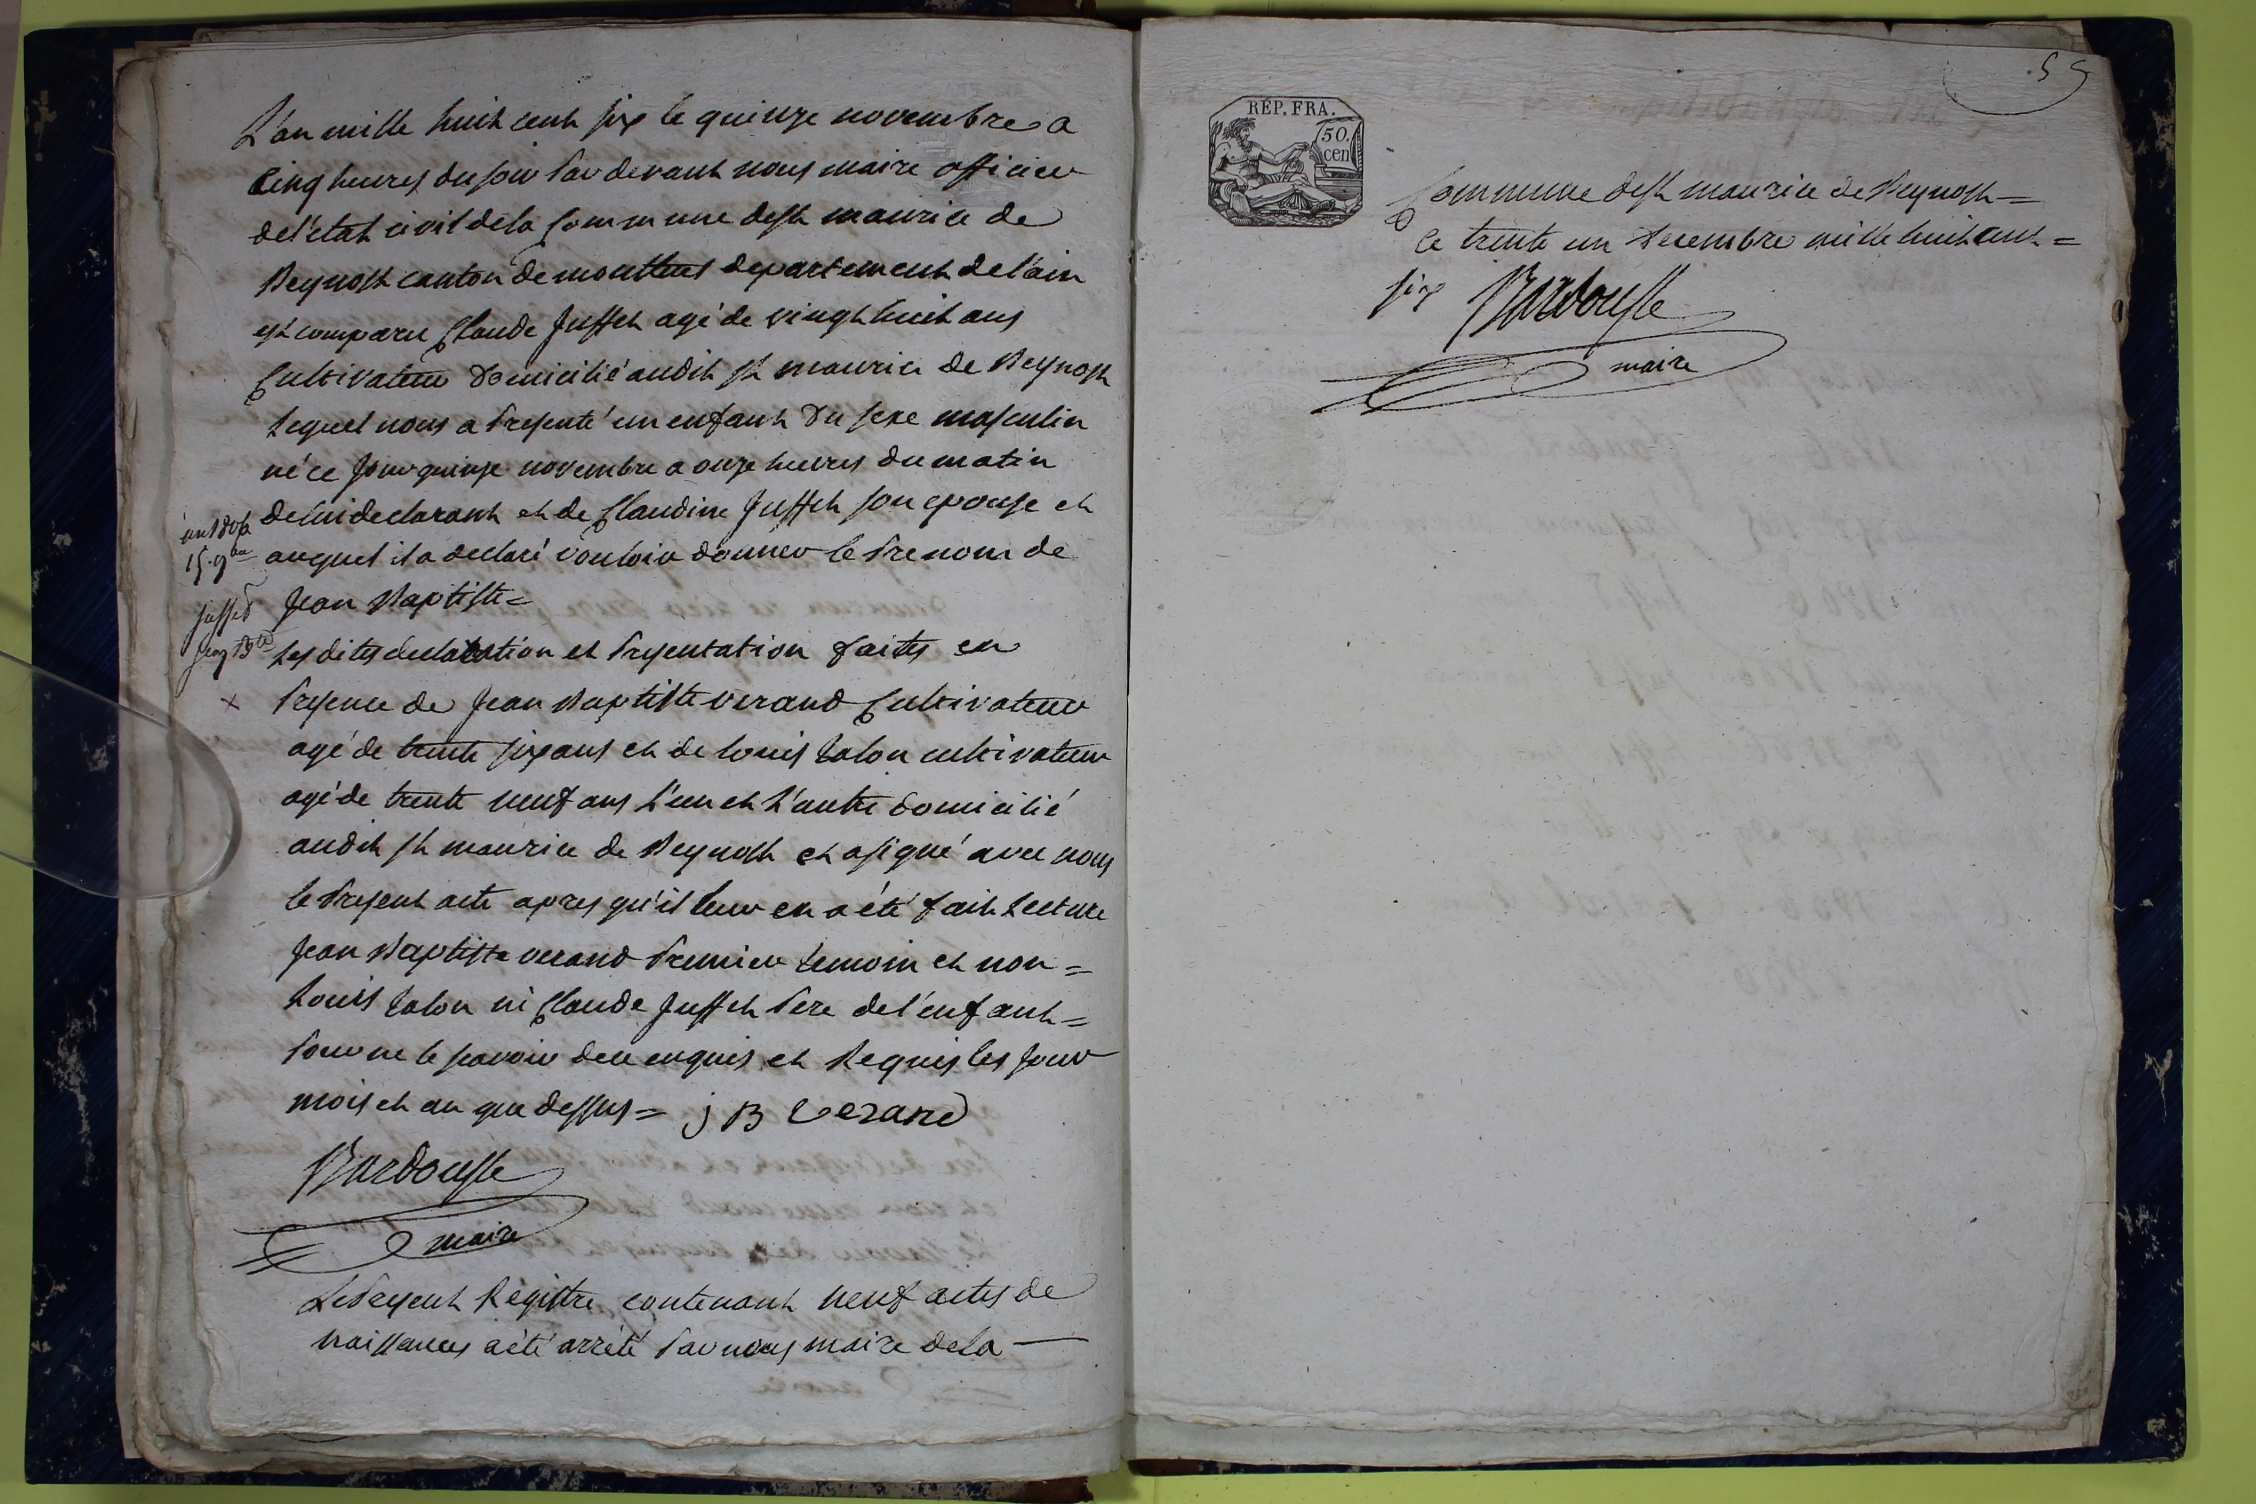 L'an mille huit cent six le quinze novembre a
cinq heures du soir par devant nous maire officier
de l'etat civil de la Commune de st maurice de
Beynost canton de montluel departement de l'ain
est comparu Claude Juffet agé de vingt huit ans
Cultivateur Domicilié audit st maurice de Beynost
Lequel nous a presenté un enfant Du sexe masculin
né ce jour quinze novembre a onze heures du matin
de lui declarant et de Claudine Juffet son epouse et
auquel il a declaré vouloir donner le prenom de
Jean Baptiste =
an 1806
15 9bre
Juffet
Jean Bte
Les dites declaration et presentation faites en
presence de Jean Baptiste verand Cultivateur
agé de trente six ans et de louis talon cultivateur
agé de trente neuf ans L'un et L'autre domicilié
audit st maurice de Beynost et a signé avec nous
le present acte apres qu'il leur en a été fait Lecture
Jean Baptiste verand premier temoin et non =
Louis talon ni Claude Juffet pere de l'enfant =
pour ne le savoir de ce enquis et Requis les jour
mois et an que dessus = j B verand
Bardousse
maire
Le present Registre contenant neuf actes de
naissances a été arrêté par nous maire de la —
55
RÉP. FRA.
50.
cen
Commune de st maurice de Beynost =
ce trente un Decembre mille huit cent =
six Bardousse
maire